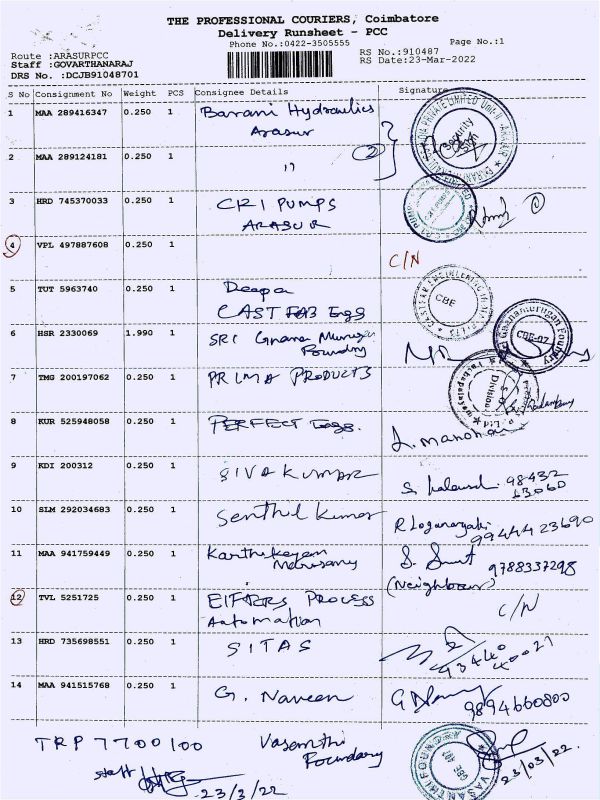 THE PROFESSIONAL COURIERS, Coimbatore
Delivery Runsheet - PCC
Phone No.:0422-3505555
Page No.:1
Route :ARASURPCC
Staff :GOVARTHANARAJ
DRS No. :DCJB91048701
RS No.:910487
RS Date:23-Mar-2022
S No Consignment No Weight PCS Consignee Details Signature
1 MAA 289416347 0.250 1 Barani Hydraulics
Arasur
2 MAA 289124181 0.250 1 "
2
3 HRD 745370033 0.250 1 CRI PUMPS
ARASUR
4 VPL 497887608 0.250 1 C/N
5 TUT 5963740 0.250 1 Deepa
CAST FAB Engg
CBE
6 HSR 2330069 1.990 1 SRI Gnana Murugan
Foundry
CBE-07
7 TMG 200197062 0.250 1 PRIMA PRODUCTS
Division
8 KUR 525948058 0.250 1 PERFECT Engg.
9 KDI 200312 0.250 1 SIVAKUMAR
98432
63060
10 SLM 292034683 0.250 1 Senthil Kumar R Loganayaki
9944423690
11 MAA 941759449 0.250 1 Karthikeyan
(Neighbour) 9788337298
12 TVL 5251725 0.250 1 PROCESS
Automation C/N
13 HRD 735698551 0.250 1 SITAS
93440
40027
14 MAA 941515768 0.250 1 G. Naveen
9894660800
TRP 7700100 Vasanthi
Foundary
VASANTHI FOUNDRY
23/03/22.
staff
23/3/22